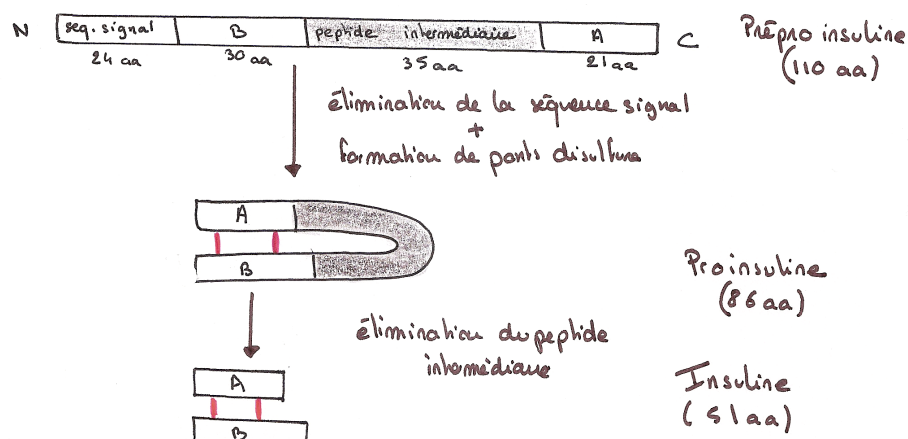 N seq. signal B peptide intermédiaire A C Prépro insuline
24 aa 30 aa 35 aa 21 aa (110 aa)
élimination de la séquence signal
+
formation de ponts disulfure
A
B
Proinsuline
(86 aa)
élimination du peptide
intermédiaire
A
B
Insuline
(51 aa)